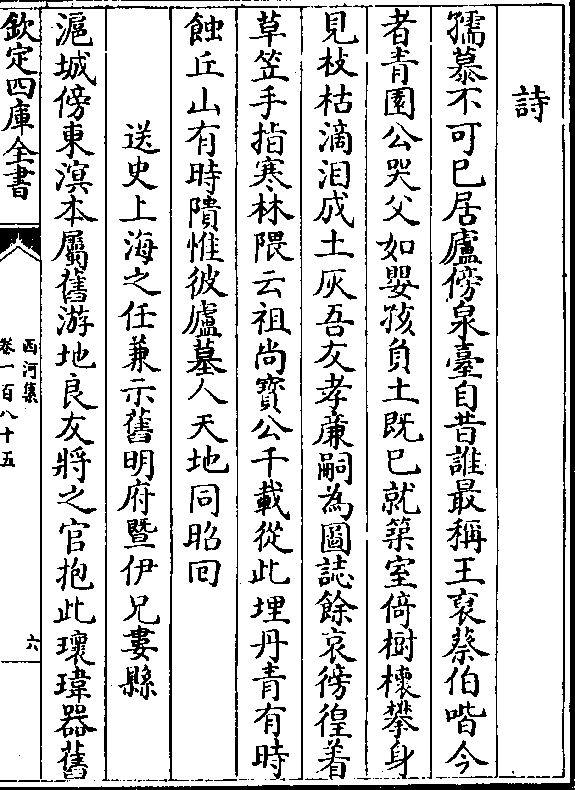 詩
孺慕不可已居廬傍泉臺自昔誰最稱王裒蔡伯喈今
者青園公哭父如嬰孩負土既已就築室倚樹櫰攀身
見枝枯滴泪成土灰吾友孝廉嗣為圖誌餘哀徬徨着
草笠手指寒林隈云祖尚寳公千載從此埋丹青有時
蝕丘山有時隤惟彼廬墓人天地同昭回
送史上海之任兼示舊明府暨伊兄婁縣
滬城傍東溟本屬舊游地良友將之官抱此瓌瑋器舊
欽定四庫全書
西河集
卷一百八十五
六